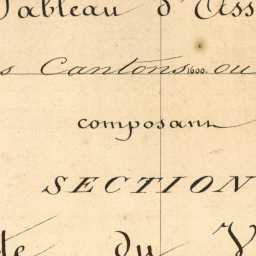 Tableau d'Ass
s Cantons 1600. ou
composant
SECTION
te du V